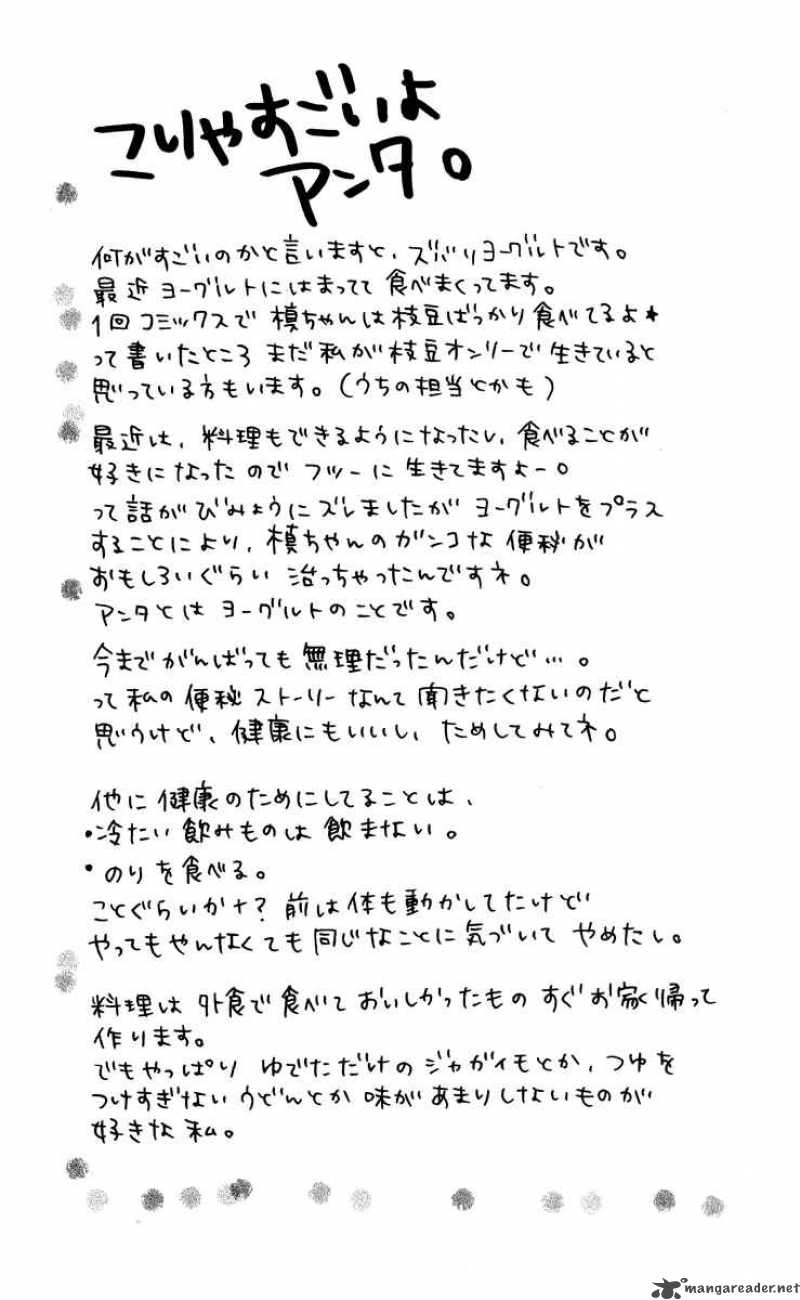 こりゃすごいよ
アンタ。
何がすごいのかと言いますと、ズバリヨーグルトです。
最近 ヨーグルトにはまってて 食べまくってます。
1回 コミックスで 槙ちゃんは枝豆ばっかり食べてるよ★
って書いたところ まだ私が枝豆オンリーで生きていると
思っている方もいます。(うちの担当とかも)
最近は、料理もできるようになったし、食べることが
好きになったので フツーに生きてますよー。
って話がびみょうにズレましたが ヨーグルトをプラス
することにより、槙ちゃんのガンコな便秘が
おもしろいぐらい 治っちゃったんですネ。
アンタとは ヨーグルトのことです。
今までがんばっても無理だったんだけど…。
って私の便秘ストーリーなんて聞きたくないのだと
思うけど、健康にもいいし、ためしてみてネ。
他に健康のためにしてることは、
・冷たい飲みものは飲まない。
・のりを食べる。
ことぐらいかナ?前は体も動かしてたけど
やってもやんなくても同じなことに気づいて やめたし。
料理は 外食で食べて おいしかったもの すぐお家帰って
作ります。
でもやっぱり ゆでただけのジャガイモとか、つゆを
つけすぎないうどんとか 味があまりしないものが
好きな私。
mangareader.net